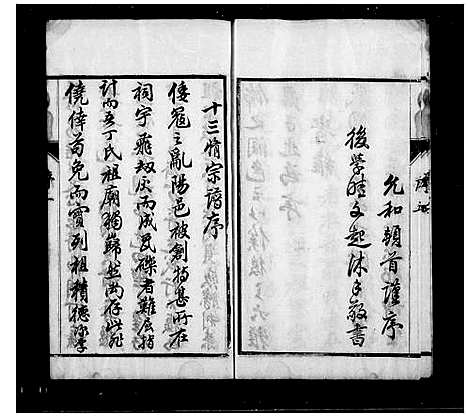 允和頓首謹序
後學時文起沐手敬書
十三脩宗譜序
倭冦之亂陽邑被創特甚所在
祠宇飛刼灰而成瓦礫者難屈指
計而吾丁氏祖廟獨巋然尚存此非
僥倖苟免而實列祖積德